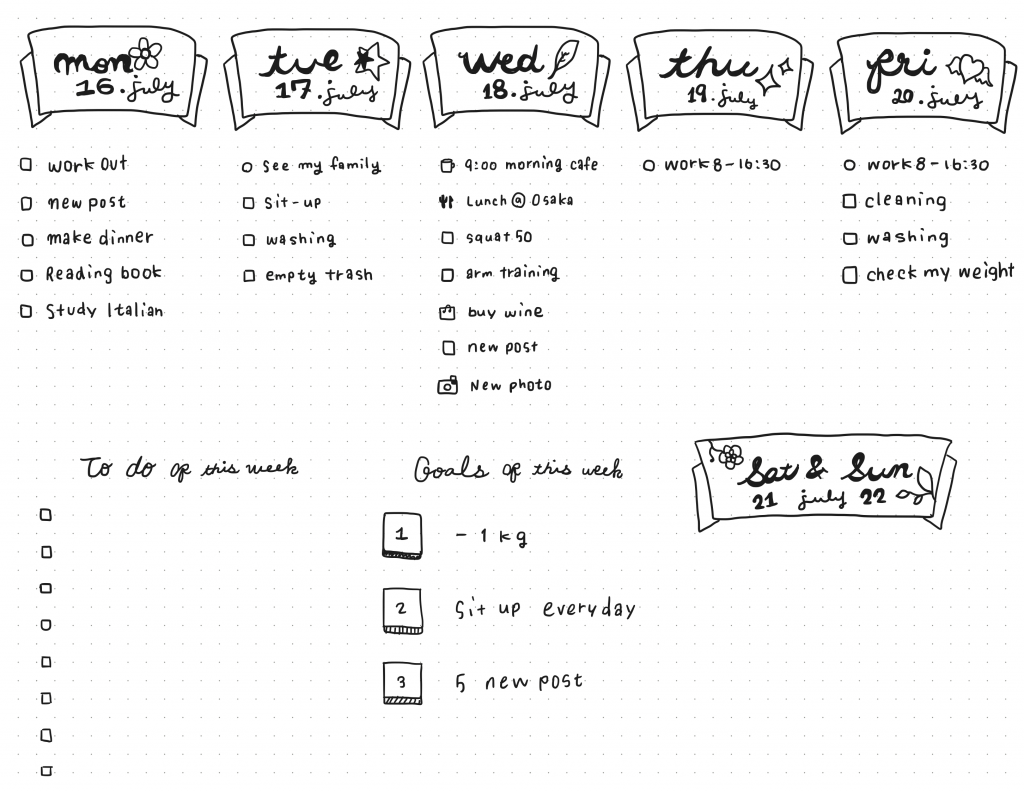 mon
16. july
work out
new post
make dinner
Reading book
Study Italian
tue
17. july
See my family
Sit-up
washing
empty trash
wed
18. july
9:00 morning cafe
Lunch @ Osaka
squat 50
arm training
buy wine
new post
New photo
thu
19. july
work 8-16:30
fri
20. july
work 8-16:30
cleaning
washing
check my weight
To do of this week
Goals of this week
1 - 1 kg
2 Sit up everyday
3 5 new post
Sat & Sun
21 july 22